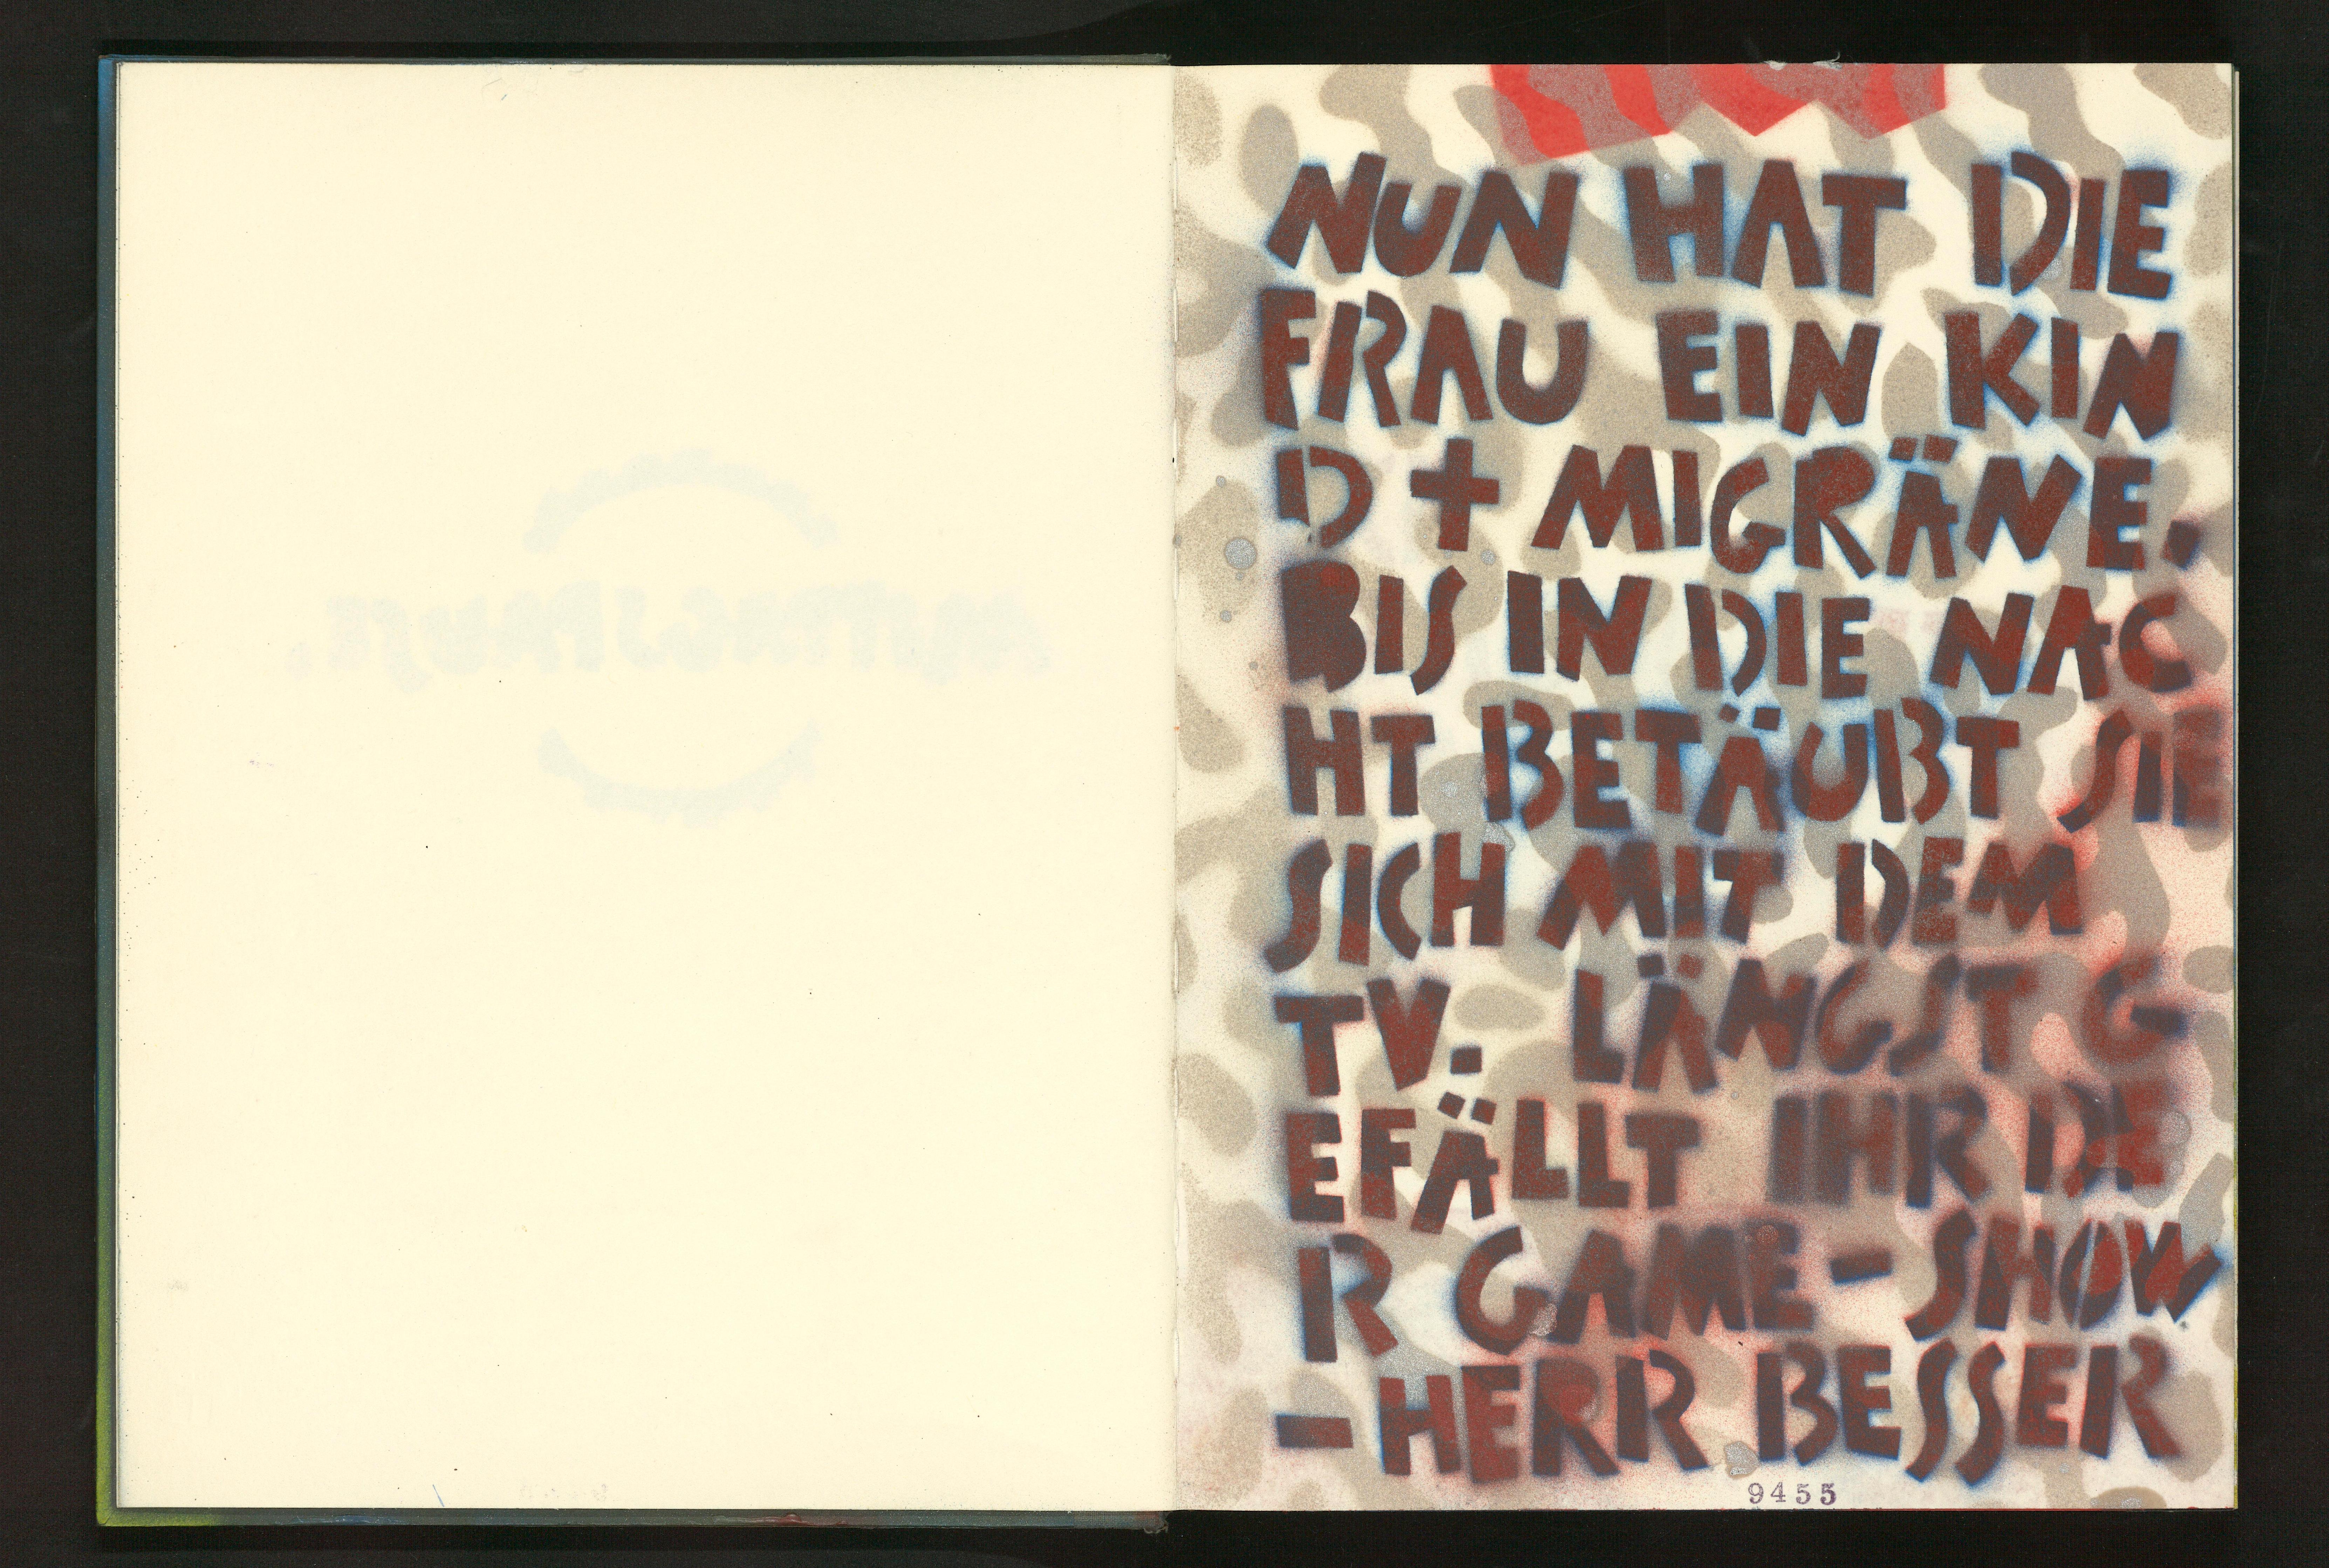 NUN HAT DIE
FRAU EIN KIN
D + MIGRÄNE.
BIS IN DIE NAC
HT BETÄUBT SIE
SICH MIT DEM
TV. LÄNGST G
EFÄLLT IHR DE
R GAME-SHOW
-HERR BESSER
9455